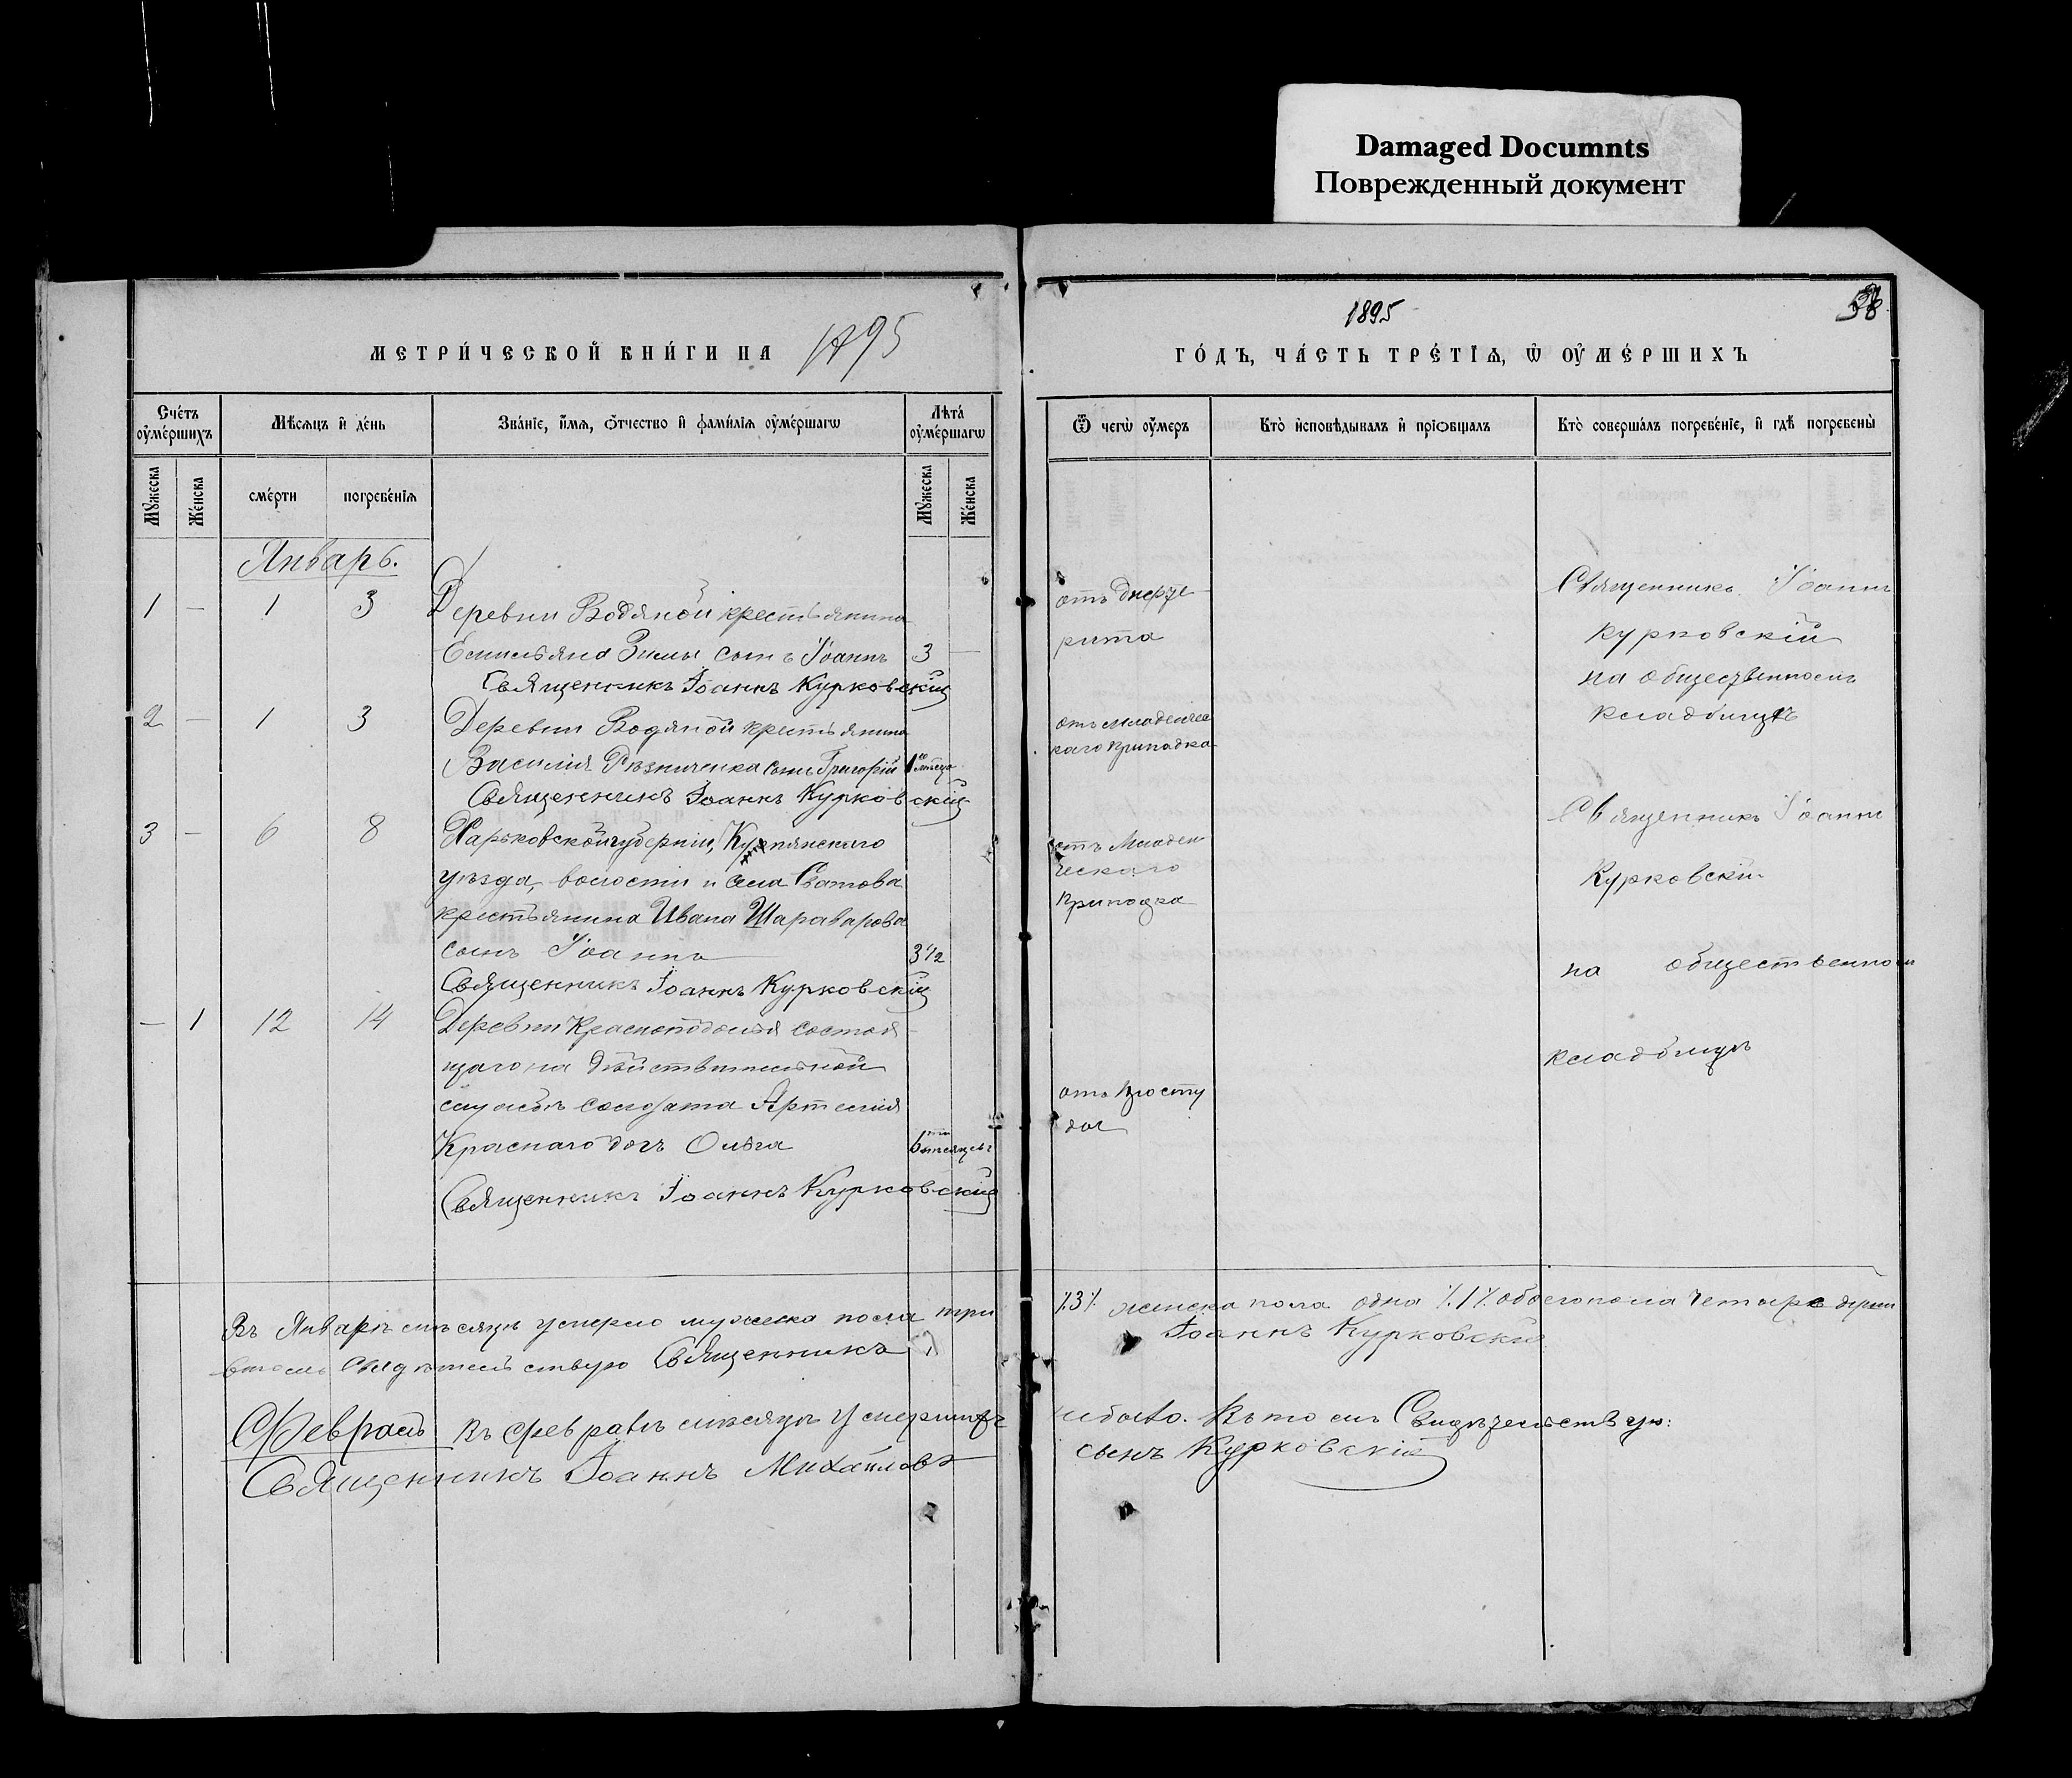 Damaged Documnts
Поврежденный документ
МЕТРИ́ЧЕСКОЙ КНИ́ГИ НА 1895
1895
ГО́ДЪ, ЧА́СТЬ ТРЕ́ТІѦ, Ѡ҆ ОУ҆МЕ́РШИХЪ
Сче́тъ оу҆ме́ршихъ
Мѣ́сѧцъ и҆ де́нь
Зва́ніе, и҆́мѧ, ѻ҆́тчество и҆ фами́лїѧ оу҆ме́ршагѡ
Лѣта̀ оу҆ме́ршагѡ
Ѿ чегѡ̀ оу҆́меръ
Кто̀ и҆сповѣ́дывалъ и҆ прїѻбщалъ
Кто̀ соверша́лъ погребе́нїе, и҆ гдѣ̀ погребены̀
Мꙋ́жеска
Же́нска
сме́рти
погребе́нїѧ
Мꙋ́жеска
Же́нска
Январь.
1 — 1 3 Деревни Водяной крестьянина
Емильяна Зимы сынъ Іоаннъ 3 —
Священникъ Іоаннъ Курковскій
отъ дифте
рита
Священникъ Іоаннъ
Курковскій
на общественномъ
кладбищѣ
2 — 1 3 Деревни Водяной крестьянина
Василія Рѣзниченка сынъ Григорій 1
Священникъ Іоаннъ Курковскій
отъ младенчес
каго припадка
3 — 6 8 Харьковской губерніи, Купянскаго
уѣзда, волости и села Сватова
крестьянина Ивана Шараварова
сынъ Іоаннъ 3 1/2
Священникъ Іоаннъ Курковскій
отъ Младен
ческаго
припадка
Священникъ Іоаннъ
Курковскій
на общественномъ
кладбищѣ
— 1 12 14 Деревни Красноподолья состоя
щаго на дѣйствительной
службѣ солдата Артемія
Краснаго дочь Ольга 6 мѣсяцевъ
Священникъ Іоаннъ Курковскій
отъ просту
ды
Въ Январѣ мѣсяцѣ умерло мужеска пола три ٪3٪ женска пола одна ٪1٪ обоего пола четыре души
въ томъ свидѣтельствую Священникъ Іоаннъ Курковскій
Февраль Въ февралѣ мѣсяцѣ умершихъ небыло. Въ томъ Свидѣтельствую:
Священникъ Іоаннъ Михайловъ сынъ Курковскій